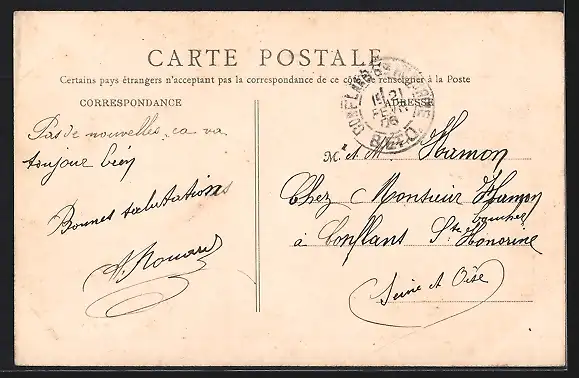 CARTE POSTALE
Certains pays étrangers n'acceptant pas la correspondance de ce côté se renseigner à la Poste
CORRESPONDANCE
ADRESSE
Pas de nouvelles, ca va
toujoue bien
Bonnes salutations
M. et Me Hamon
Chez Monsieur Hamon
boucher
à Conflans Ste Honorine
Seine et Oise
21
FEVR
06